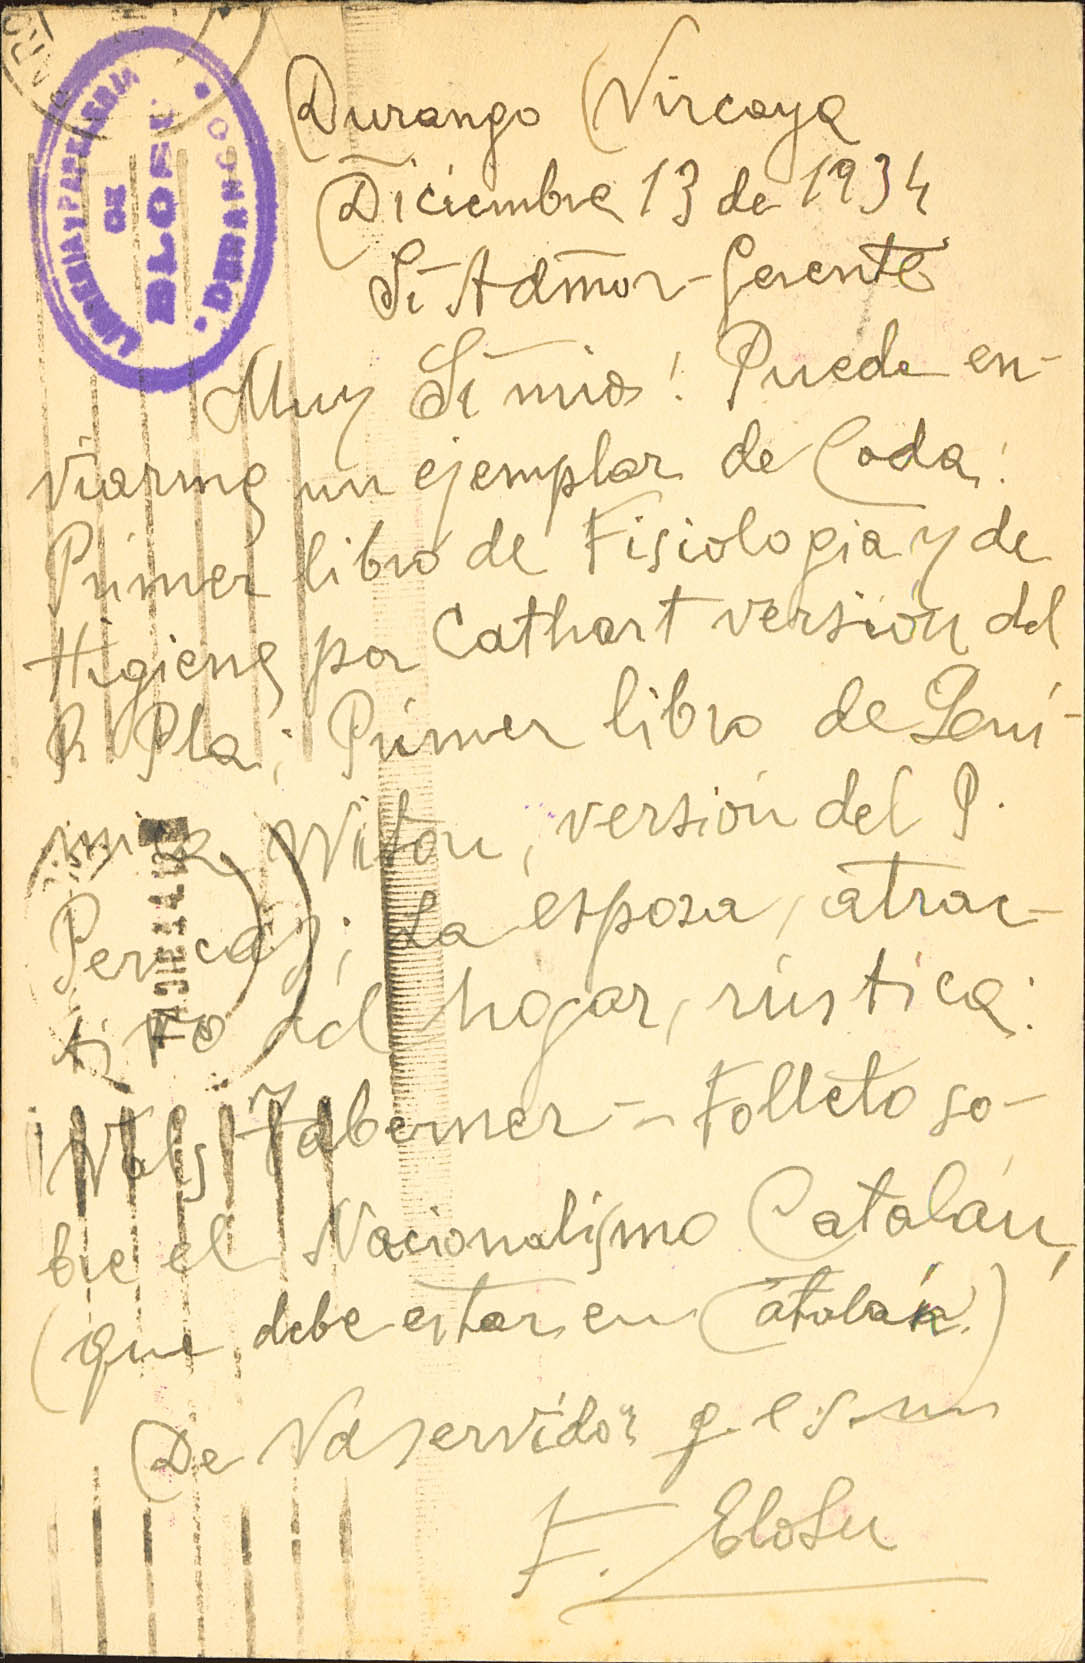 LIBRERIA Y PAPELERIA
DE
DURANGO
Durango Vircaya
Diciembre 13 de 1934
Sr Admor-Gerente
Muy Sr mio: Puede en-
viarme un ejemplar de Coda:
Primer libro de Fisiologia y de
Higiene por Cathart version del
P. Pla; Primer libro de Quí-
mica, Wilson, version del P.
Pericas; La esposa, atrac-
tivo del hogar, rústica:
Valls Taberner - Folleto so-
bre el Nacionalismo Catalán,
(que debe estar en Catalán.)
De Vd servidor q. e. s. m
F. Elosu